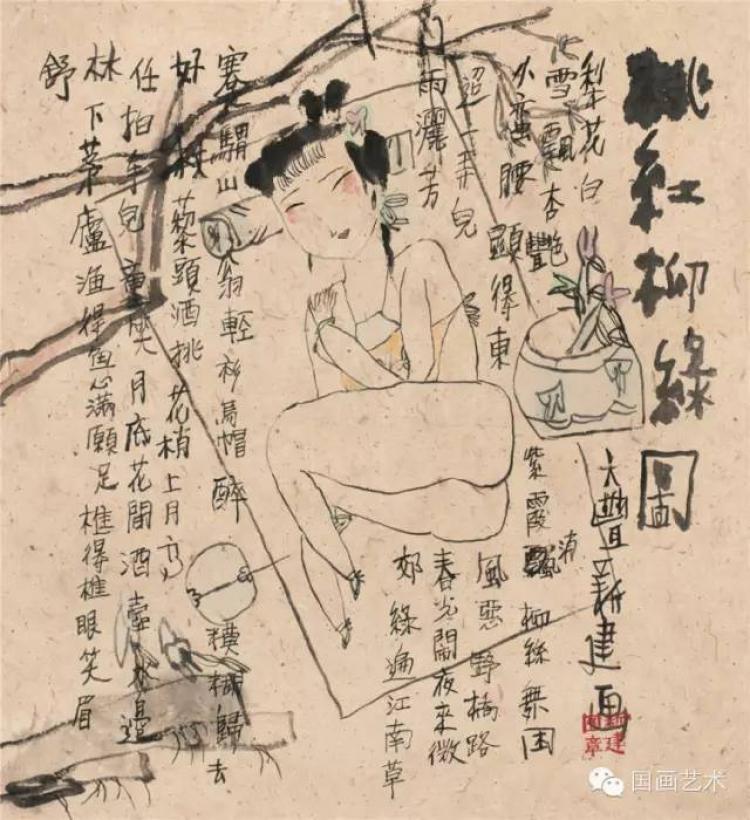 桃紅柳綠圖
大豐新建画
梨花白
雪飄杏艷紫霞消柳絲舞困
小蠻腰顯得東風惡野橋路
迢一弄兒春光鬧夜來微
雨灑芳郊綠遍江南草
蹇驢山翁輕衫烏帽醉模糊歸去
好杖藜頭酒挑花梢上月高
任拍手兒童笑月底花間酒壺水邊
林下茅廬漁得魚心滿願足樵得樵眼笑眉
舒
新建
图章
国画艺术